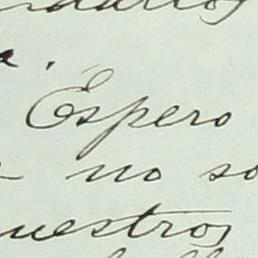 Espero
no so
uestros